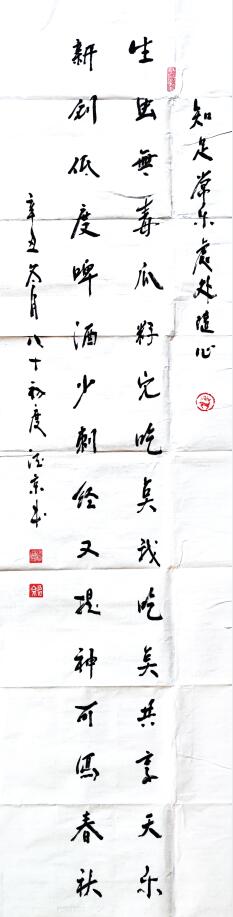 知足常乐處处随心
生虫無毒瓜籽吃我吃共享天乐
新创低度啤酒少刺经又提神可寫春秋
辛丑冬月八十初度